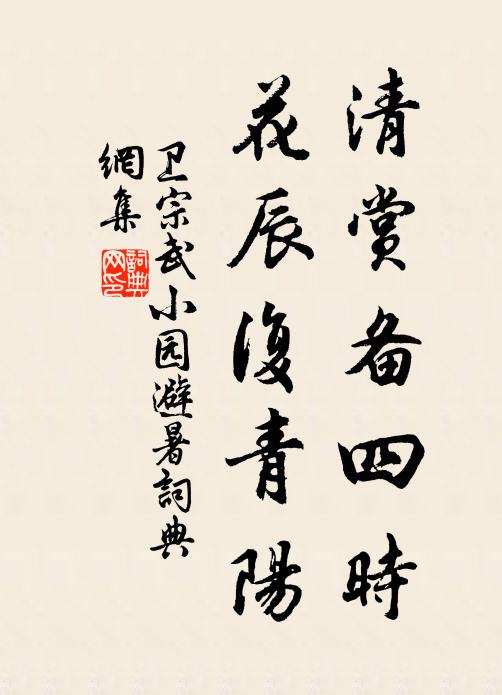 清赏备四時
花辰復青陽
卫宗武小园避暑詞典
網集
詞典
网印